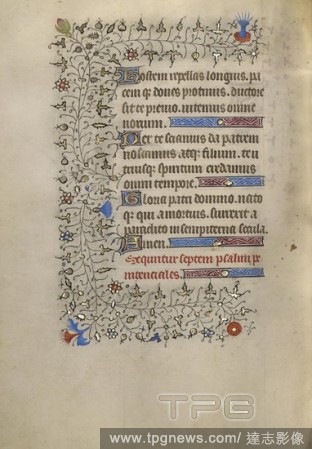 Hostem repellas longius. pa
cem q̄ dones protinus. ductore
sic te previo. vitemus omne
noxium.
Per te sciamus da patrem
noscamus atq̄ filium. te u
triusq̄ spiritum credamus
omni tempore.
Gloria patri domino. nato
q̄ qui a mortuis. surrexit a
paraclito in sempiterna secula.
Amen.
Secuntur septem psalmi pe
nitenciales.
TPG
www.tpgnews.com/ 達志影像